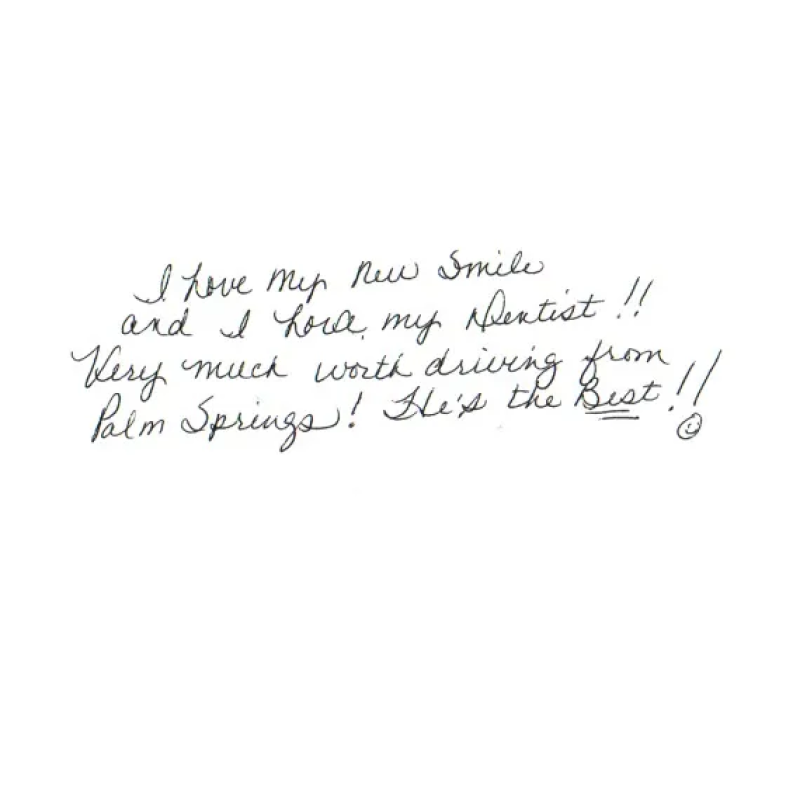 I Love My New Smile
and I Love my Dentist!!
Very much worth driving from
Palm Springs! He's the Best!!